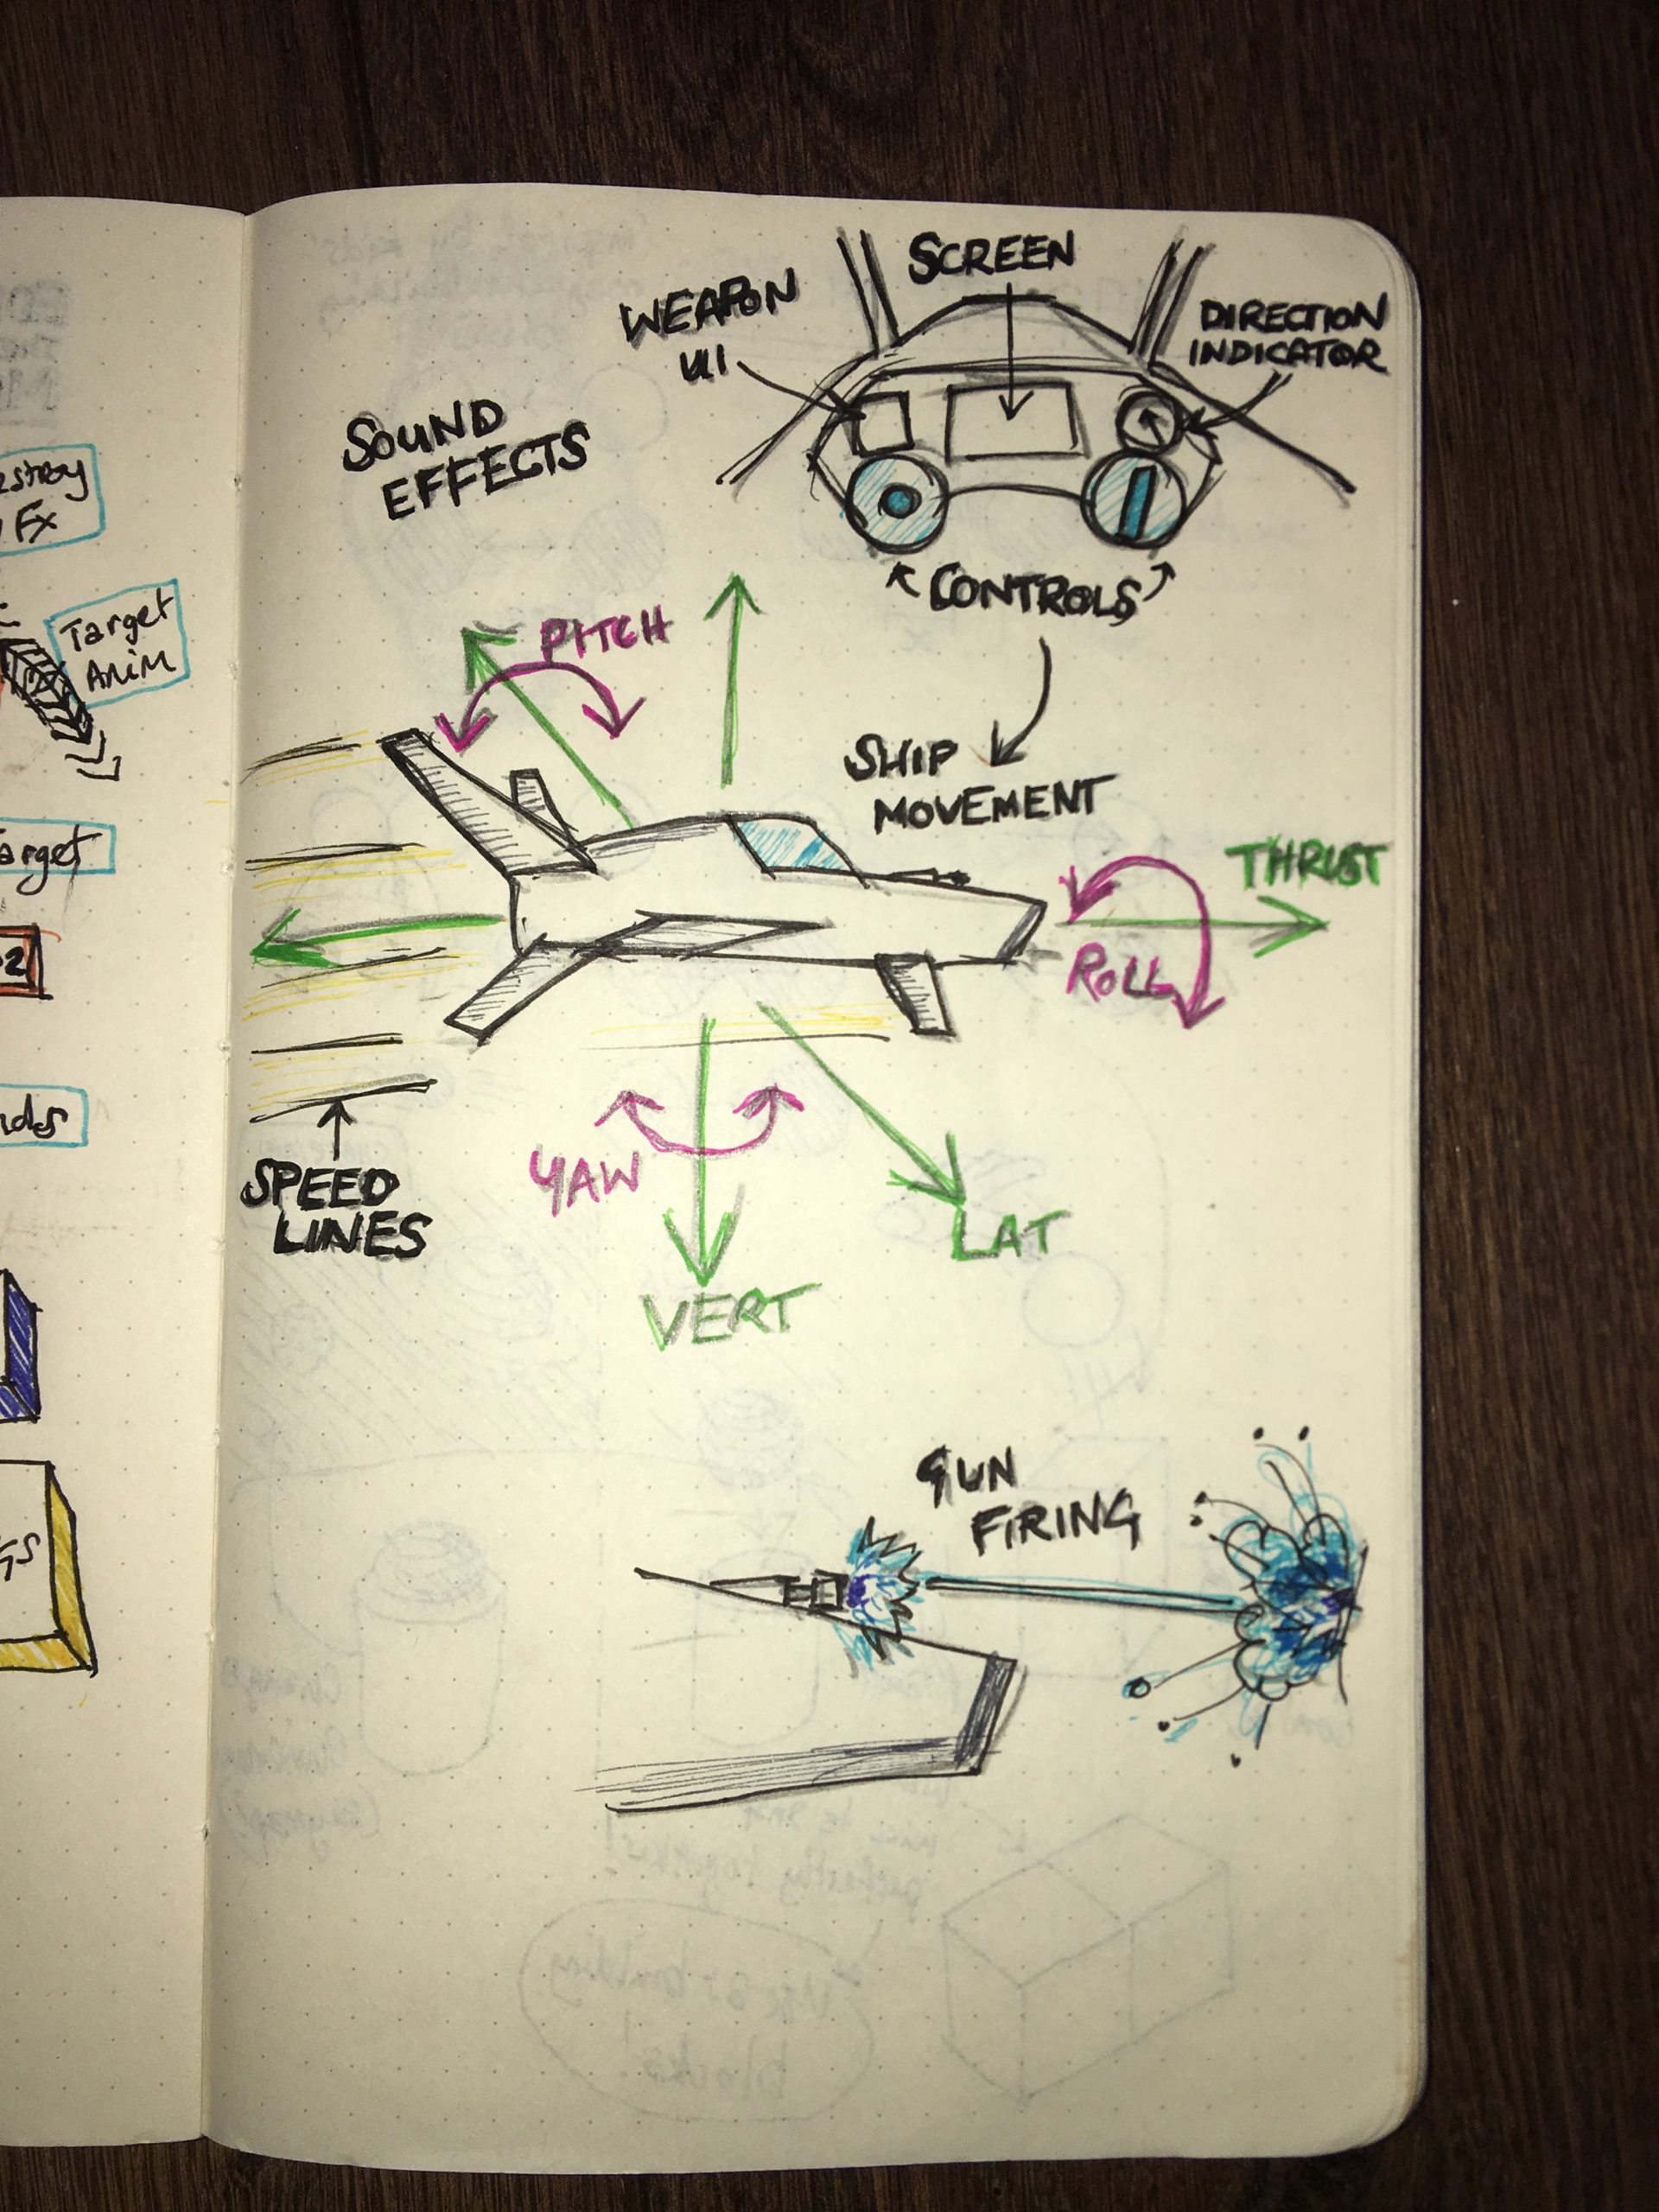 SCREEN
WEAPON
UI
DIRECTION
INDICATOR
SOUND
EFFECTS
CONTROLS
PITCH
SHIP
MOVEMENT
THRUST
ROLL
YAW
LAT
VERT
SPEED
LINES
GUN
FIRING
Fx
Target
Anim